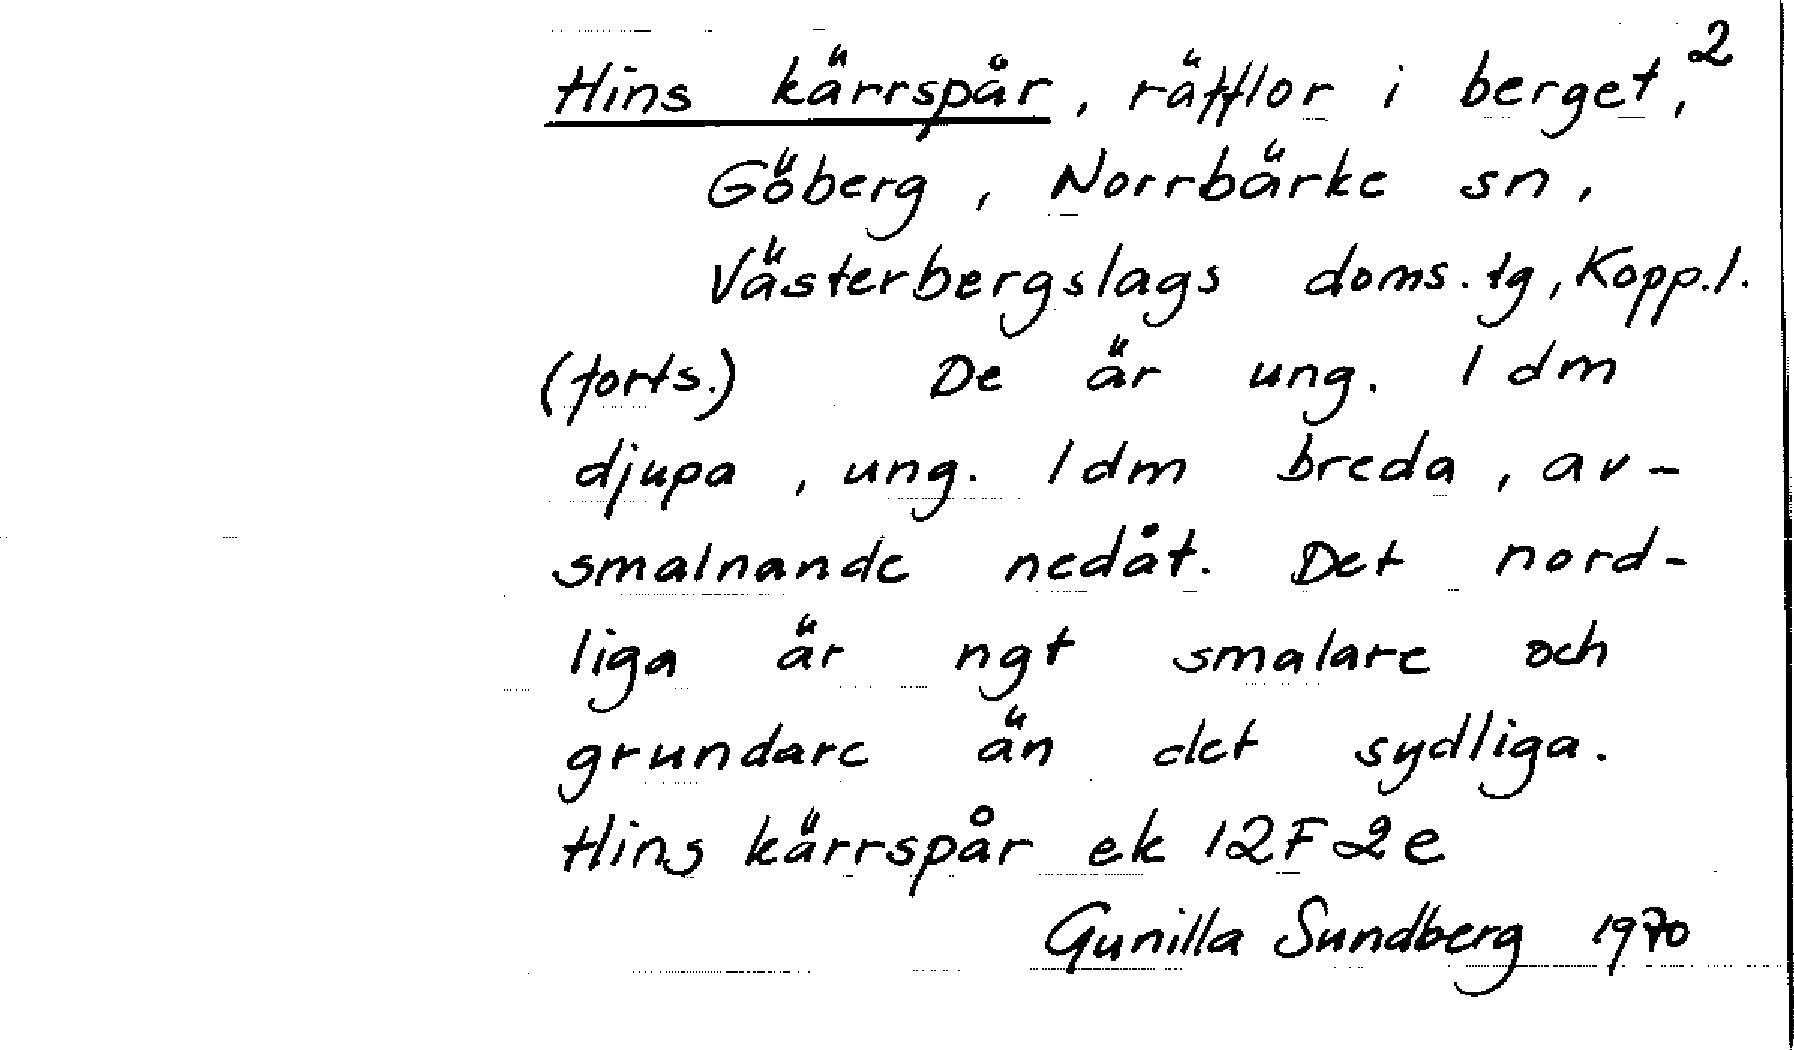 2
Hins kärrspår, räfflor i berget,
Göberg, Norrbärke sn,
Västerbergslags doms.tg, Kopp.l.
(forts.) De är ung. 1 dm
djupa, ung. 1 dm breda, av-
smalnande nedåt. Det nord-
liga är ngt smalare och
grundare än det sydliga.
Hins kärrspår ek 12F2e
Gunilla Sundberg 1970